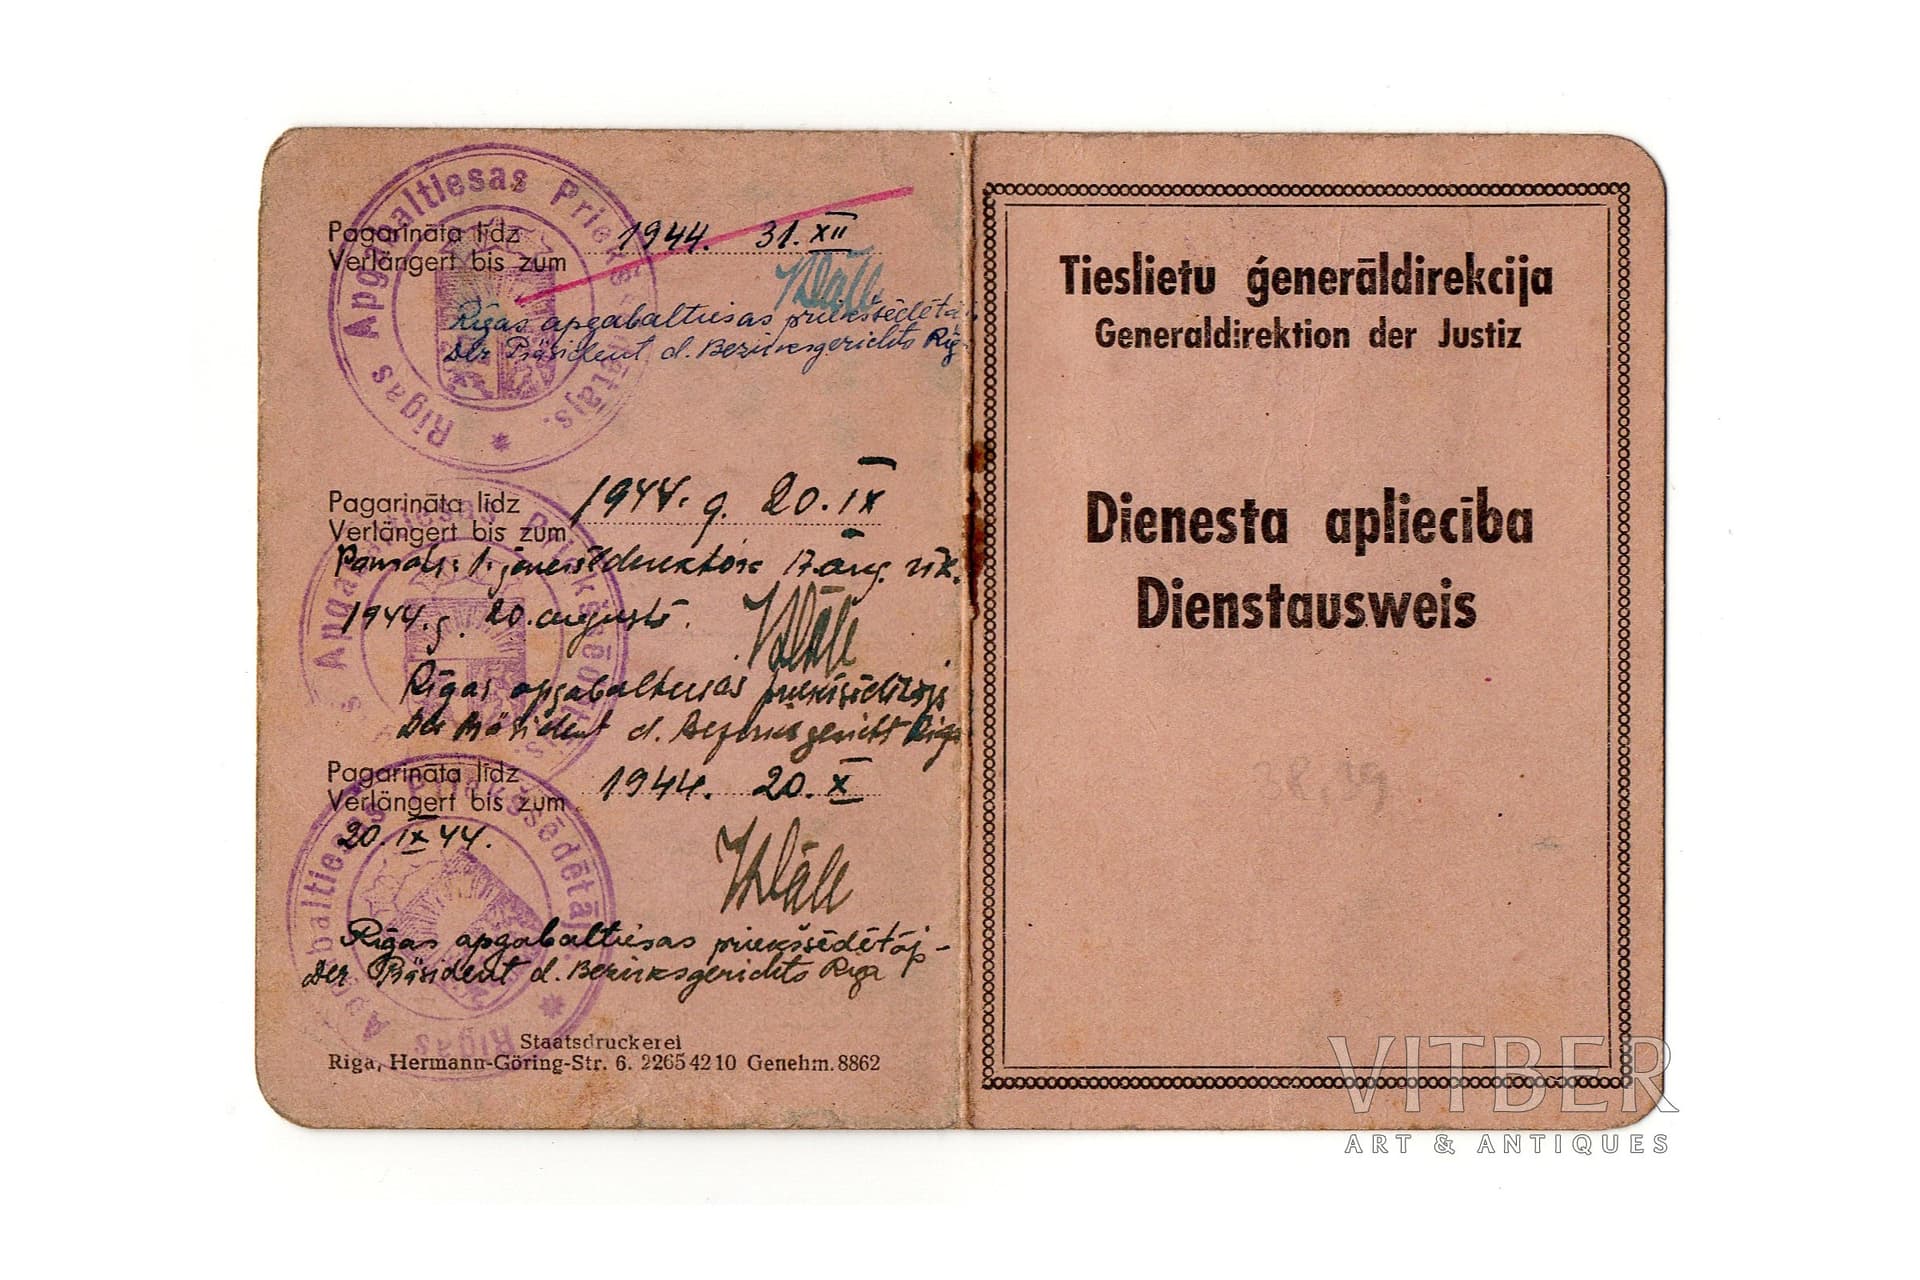 Pagarināta līdz 1944. 31. XII
Verlängert bis zum
Rīgas apgabaltiesas priekšsēdētājs
Der Präsident d. Bezirksgerichts Rig
Rīgas Apgabaltiesas Priekšsēdētājs.
Pagarināta līdz 1944. g. 20. IX
Verlängert bis zum
Pamats: 17. aug.
1944. g. 20. augustā.
Rīgas apgabaltiesas priekšsēdētājs
Der Präsident d. Bezirksgericht Riga
Pagarināta līdz 1944. 20. X
Verlängert bis zum
20. IX 44.
Rīgas apgabaltiesas priekšsēdētāj-
Der Präsident d. Bezirksgerichts Riga
Staatsdruckerei
Riga, Hermann-Göring-Str. 6. 2265 42 10 Genehm. 8862
Tieslietu ģenerāldirekcija
Generaldirektion der Justiz
Dienesta apliecība
Dienstausweis
38,39
VITBER
ART & ANTIQUES